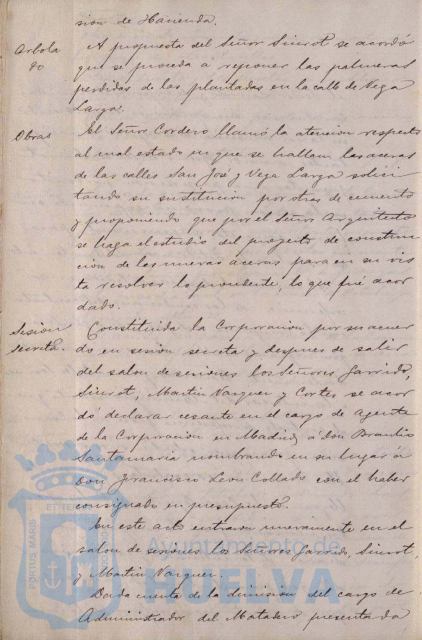 sion de Hacienda.
Arbola
do
A propuesta del Señor Siurot se acordó
que se proceda a reponer las palmeras
perdidas de las plantadas en la calle de Vega
Larga.
Obras
El Señor Cordero llamó la atencion respecto
al mal estado en que se hallan las aceras
de las calles San José y Vega Larga solici
tando su sustitucion por otras de cemento
y proponiendo que por el Señor Arquitecto
se haga el estudio del proyecto de construc
cion de las nuevas aceras para en su vis
ta resolver lo procedente, lo que fué acor
dado.
Sesion
secreta.
Constituida la Corporacion por su acuer
do en sesion secreta y despues de salir
del salon de sesiones los Señores Garrido,
Siurot, Martin Vazquez y Cortes se acor
dó declarar cesante en el cargo de Agente
de la Corporacion en Madrid á don Braulio
Santamaria nombrando en su lugar á
Don Francisco Leon Collado con el haber
consignado en presupuesto.
En este acto entraron nuevamente en el
salon de sesiones los Señores Garrido, Siurot,
y Martin Vazquez.
Dada cuenta de la dimision del cargo de
Administrador del Matadero presentada
PORTUS MARIS
ET TERRÆ
Ayuntamiento de
HUELVA